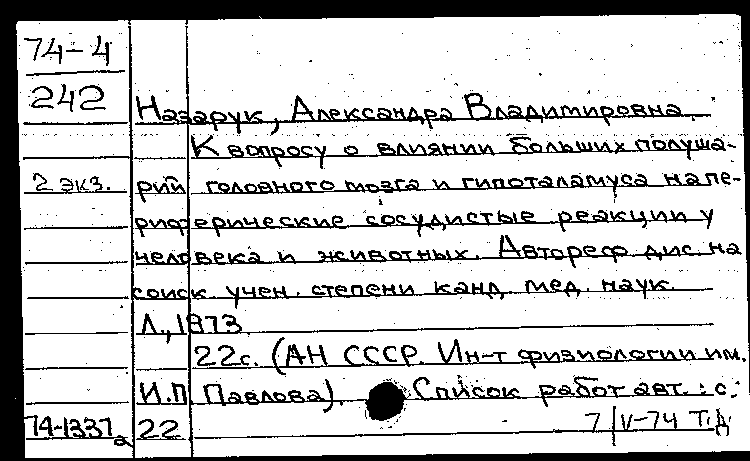 74-4
242
Назарук, Александра Владимировна.
К вопросу о влиянии больших полуша-
2 экз. рий головного мозга и гипоталамуса на пе-
риферические сосудистые реакции у
человека и животных. Автореф. дис. на
соиск. учен. степени канд. мед. наук.
Л., 1973.
22с. (АН СССР. Ин-т физиологии им.
И.П. Павлова). Список работ авт.: с.
74-1337а 22 7/V-74 Т.Д.